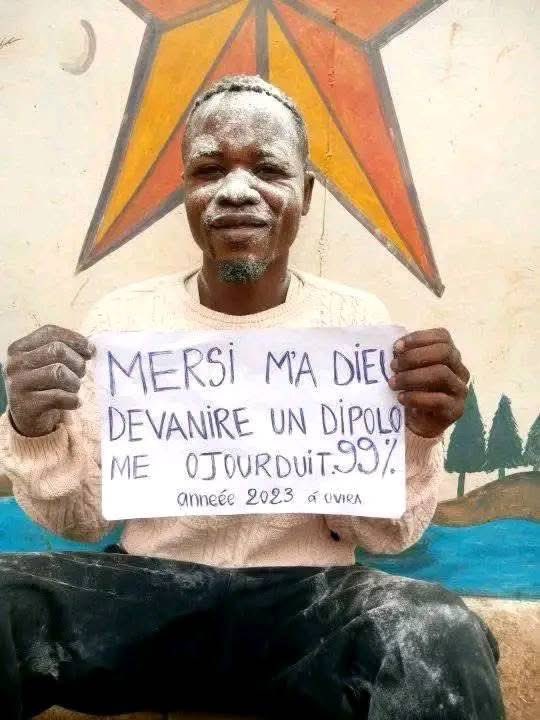 MERSI M'A DIEU
DEVANIRE UN DIPOLO
ME OJOURDUIT.99%
anneée 2023 á UVIRA